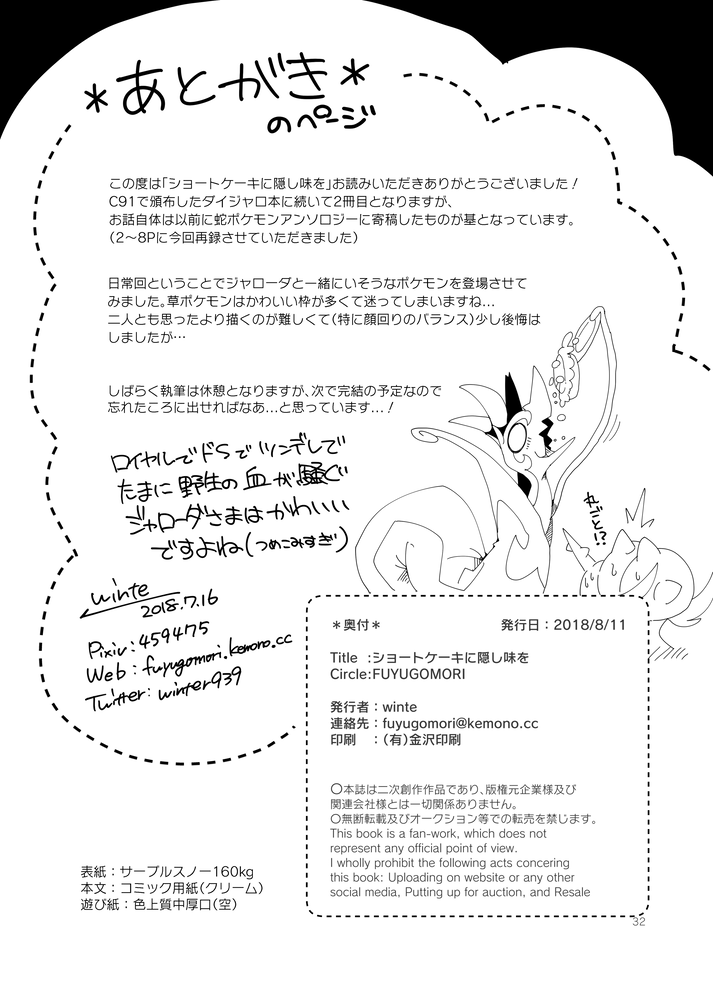 ＊あとがき＊
のページ
この度は「ショートケーキに隠し味を」お読みいただきありがとうございました！
C91で頒布したダイジャロ本に続いて2冊目となりますが、
お話自体は以前に蛇ポケモンアンソロジーに寄稿したものが基となっています。
（2〜8Pに今回再録させていただきました）
日常回ということでジャローダと一緒にいそうなポケモンを登場させて
みました。草ポケモンはかわいい枠が多くて迷ってしまいますね…
二人とも思ったより描くのが難しくて（特に顔回りのバランス）少し後悔は
しましたが…
しばらく執筆は休憩となりますが、次で完結の予定なので
忘れたころに出せればなあ…と思っています…！
ロイヤルでドSでツンデレで
たまに野生の血が騒ぐ
ジャローダさまはかわいい
ですよね（つめこみすぎ）
丸ごと!?
winte
2018.7.16
Pixiv：459475
Web：fuyugomori.kemono.cc
Twitter：winter939
＊奥付＊ 発行日：2018/8/11
Title :ショートケーキに隠し味を
Circle:FUYUGOMORI
発行者：winte
連絡先：fuyugomori@kemono.cc
印刷　：（有）金沢印刷
〇本誌は二次創作作品であり、版権元企業様及び
関連会社様とは一切関係ありません。
〇無断転載及びオークション等での転売を禁じます。
This book is a fan-work, which does not
represent any official point of view.
I wholly prohibit the following acts concering
this book: Uploading on website or any other
social media, Putting up for auction, and Resale
表紙：サーブルスノー160kg
本文：コミック用紙（クリーム）
遊び紙：色上質中厚口（空）
32